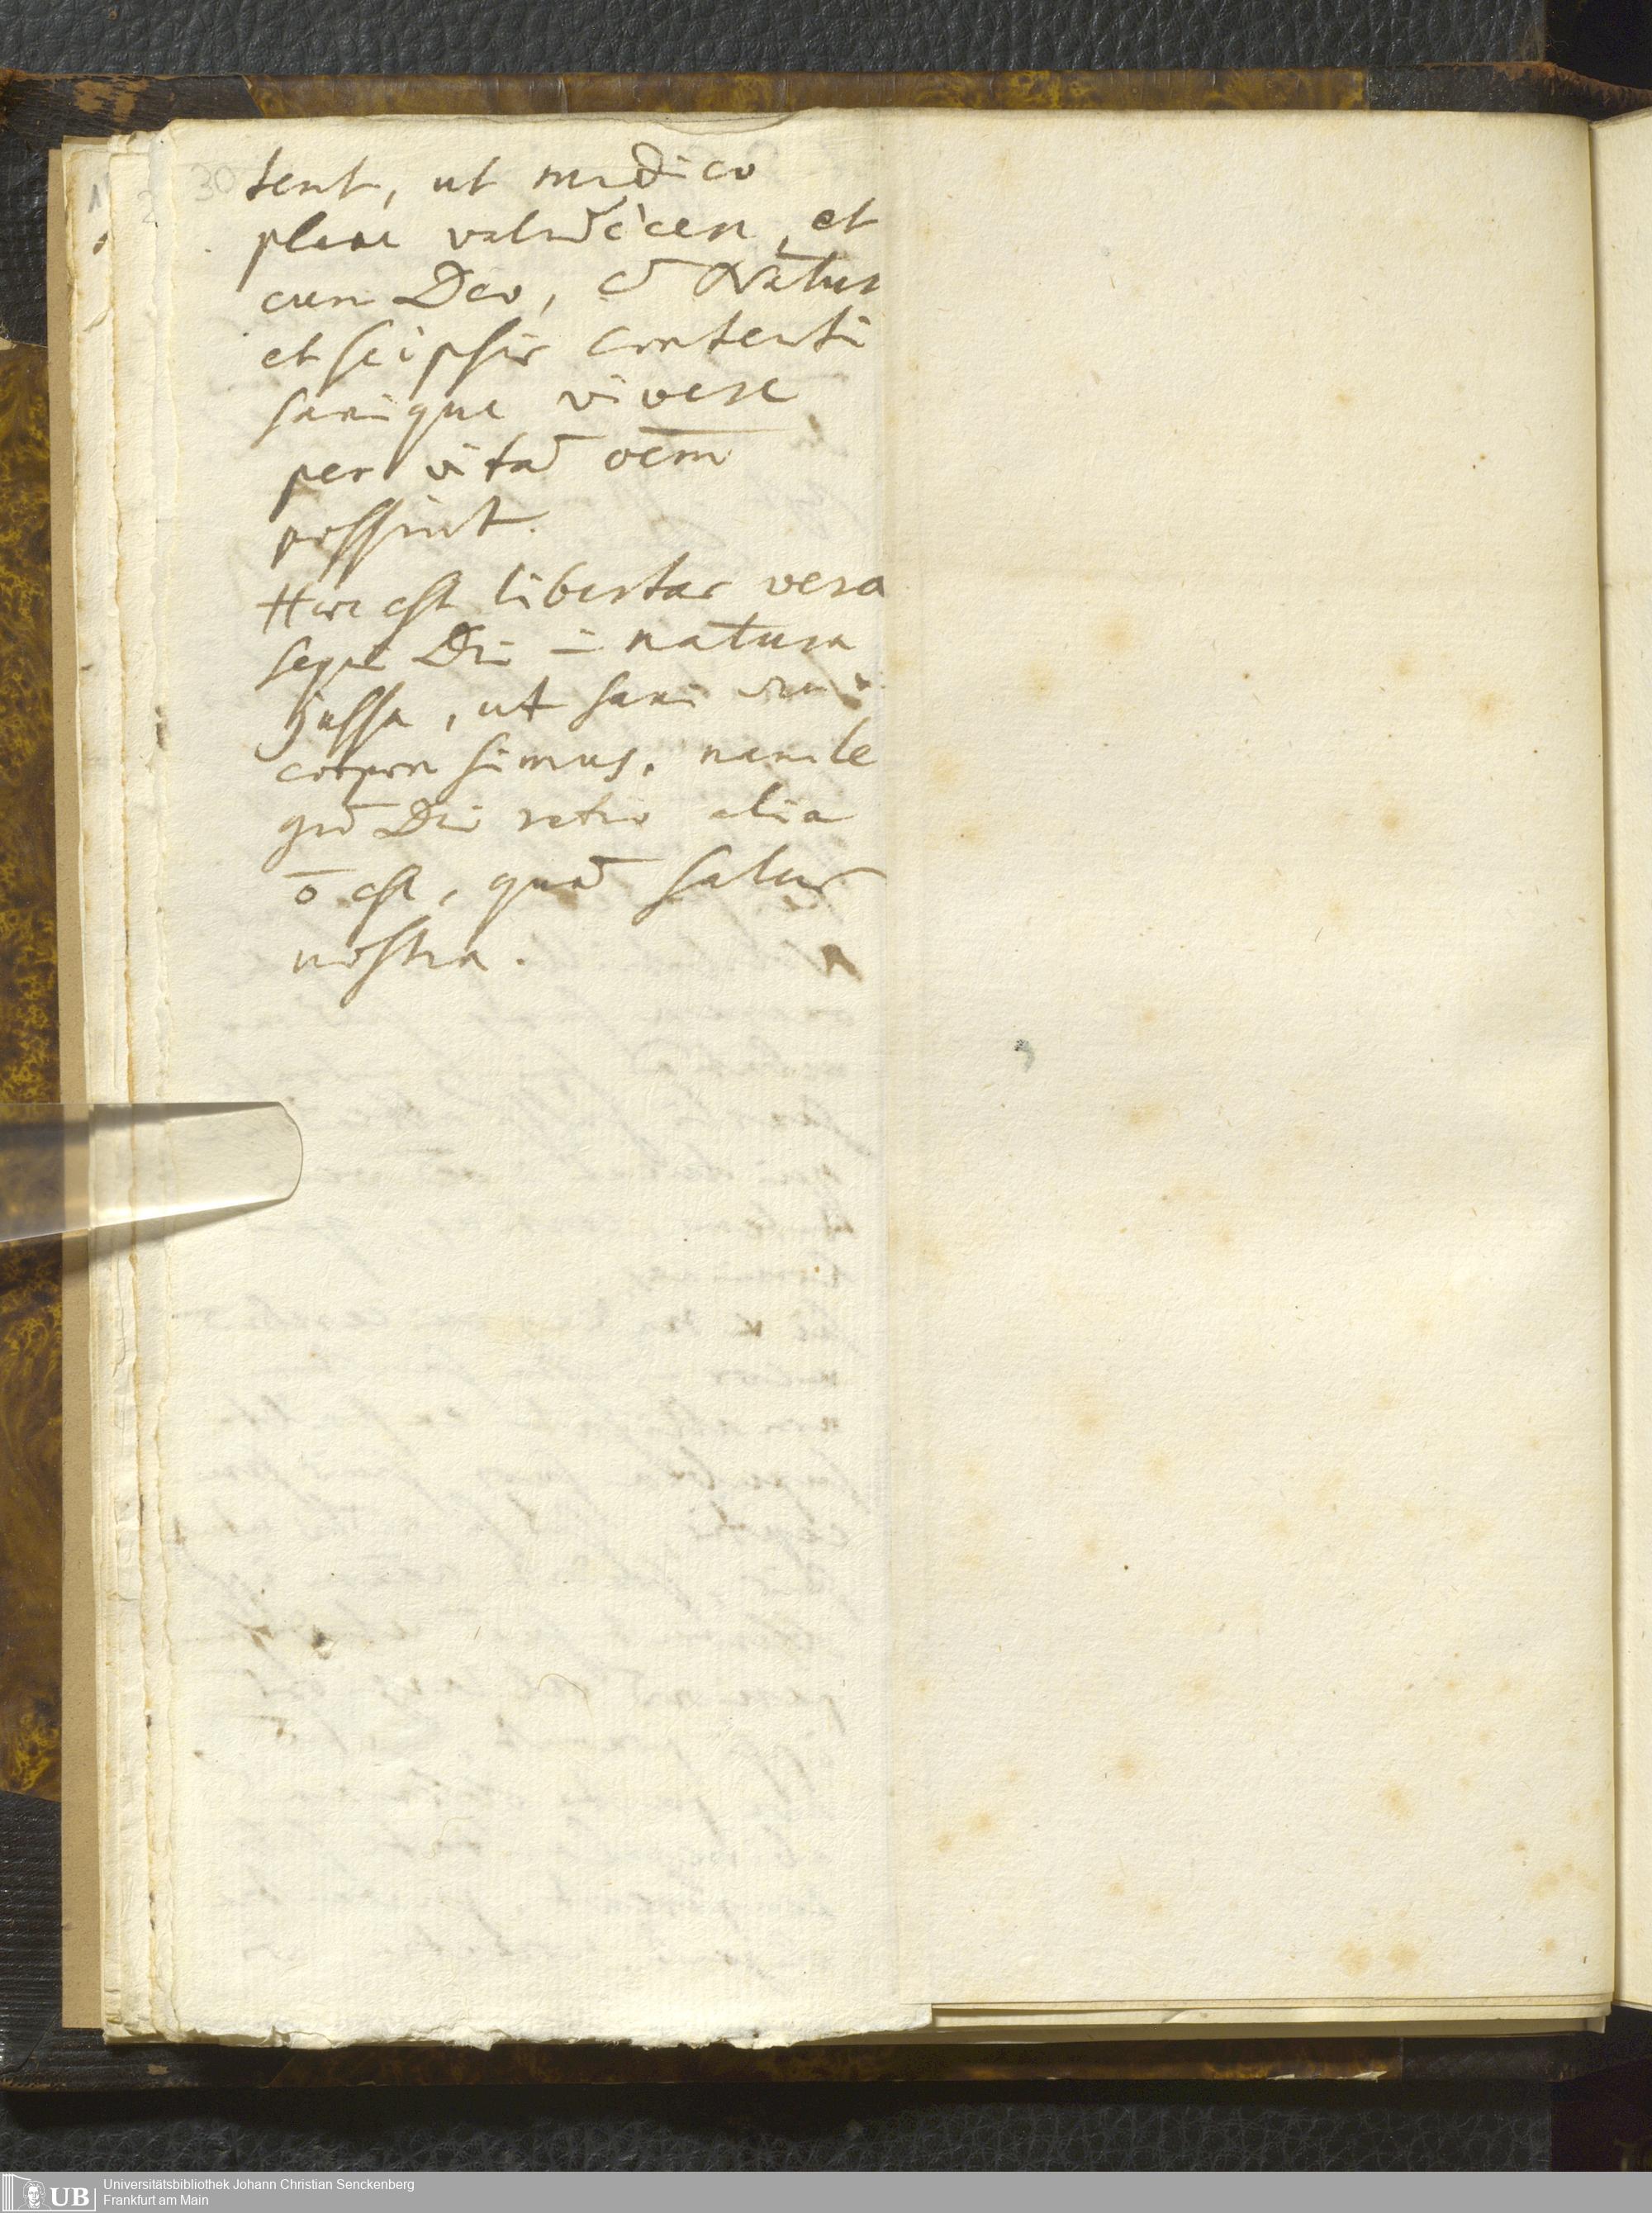 30
tent, ut medico
plane valedicen, et
cum Deo, c̄ Natur
et seipsis contenti
sanique vivere
per vitā oem̄
possint.
Haec est libertas vera
sequi Dei in natura
jussa, ut sani
corpore simus. nam le
gū Dei ratio alia
ō est, quā salus
nostra.
UB
Universitätsbibliothek Johann Christian Senckenberg
Frankfurt am Main